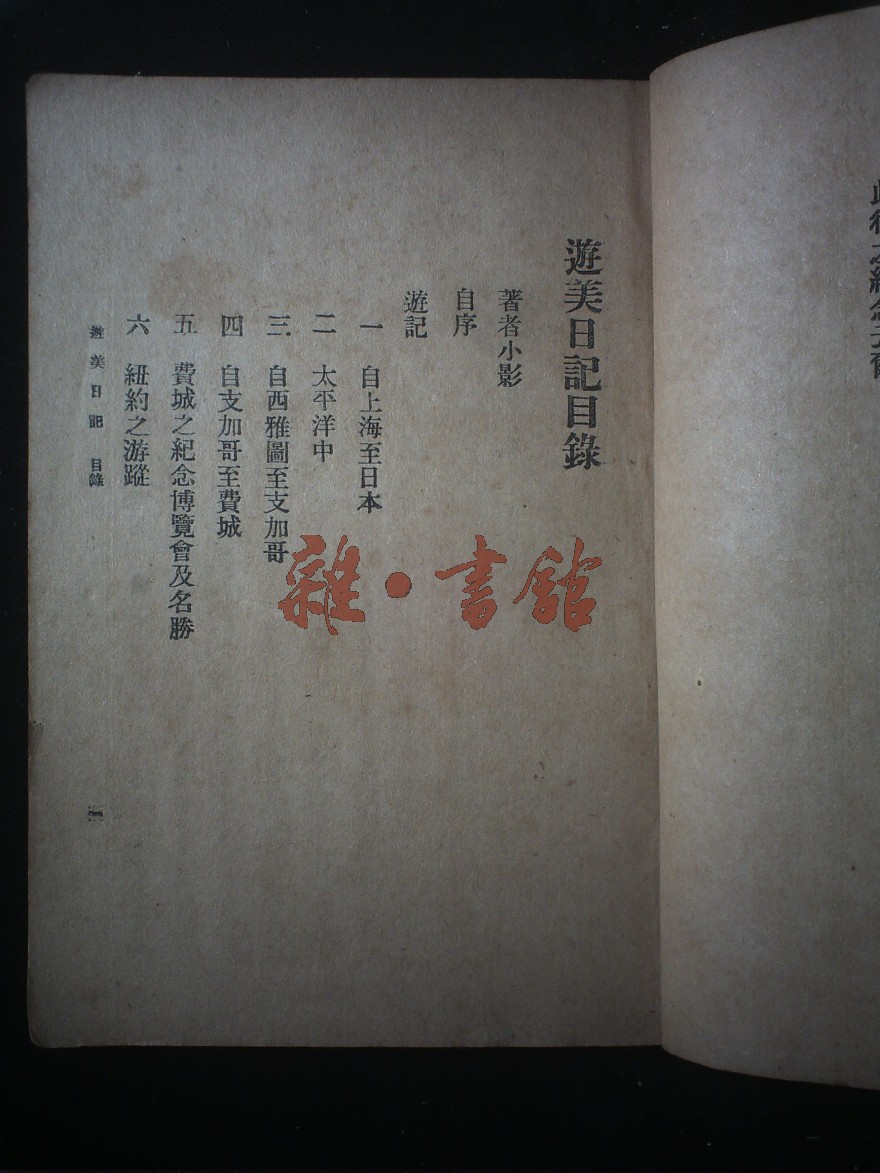 遊美日記目錄
著者小影
自序
遊記
一 自上海至日本
二 太平洋中
三 自西雅圖至支加哥
四 自支加哥至費城
五 費城之紀念博覽會及名勝
六 紐約之游蹤
遊美日記 目錄
雜·書館